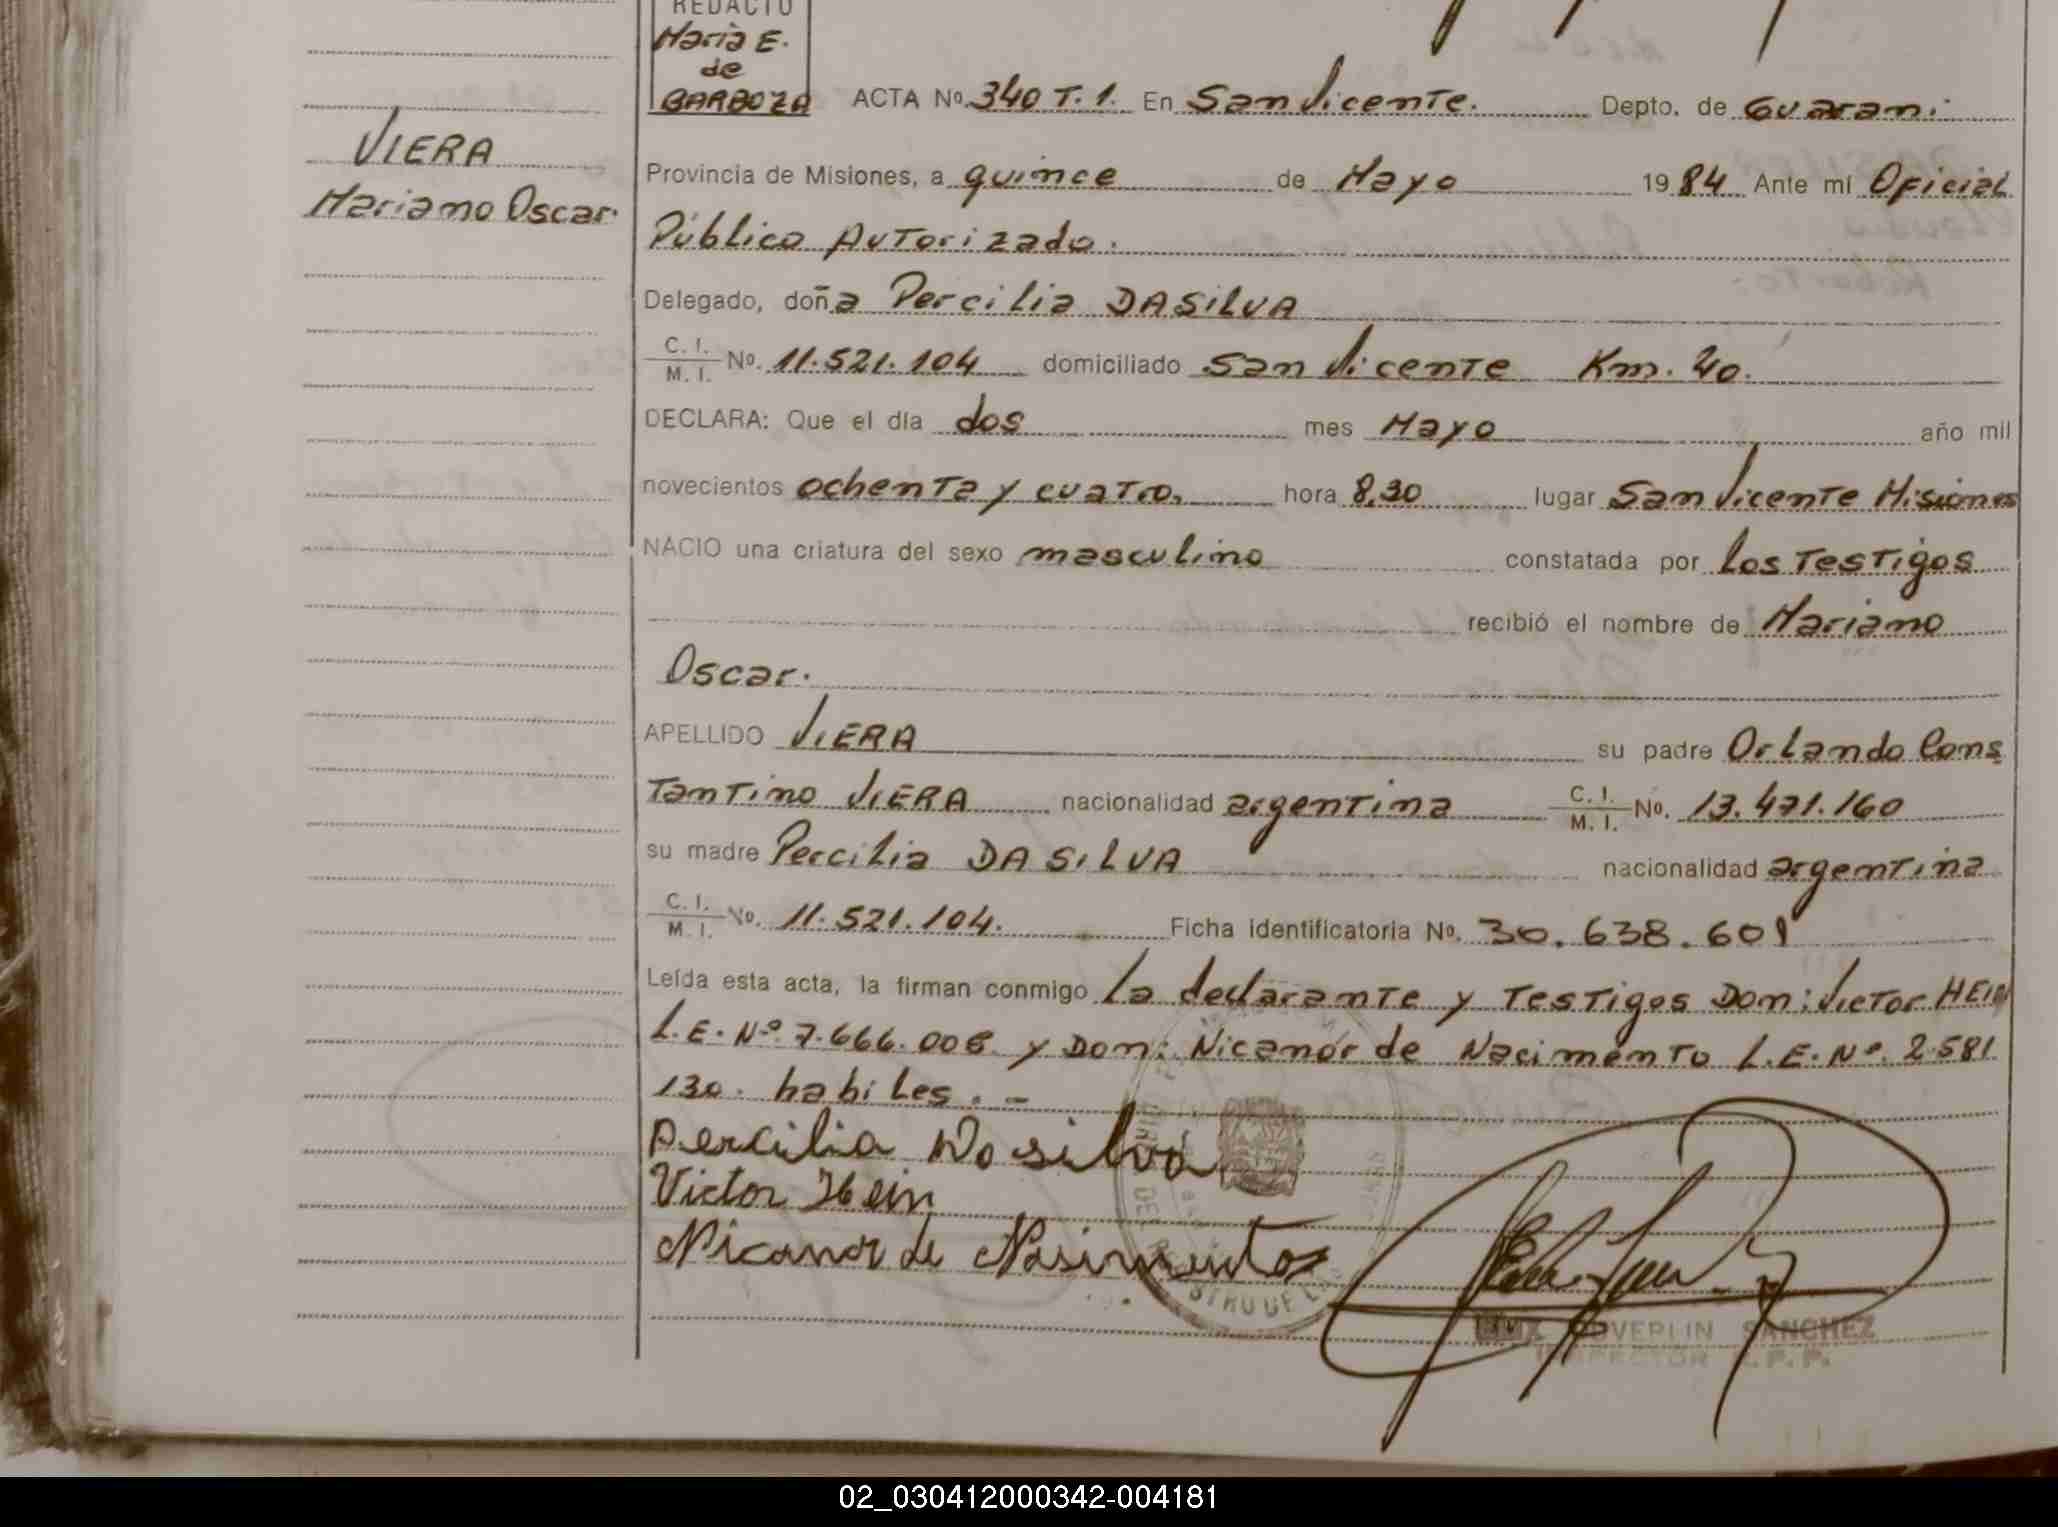 REDACTO
Maria E.
de
BARBOZA
ACTA No. 340 T. 1. En San Vicente. Depto. de Guarani
VIERA
Mariano Oscar.
Provincia de Misiones, a quince de Mayo 1984 Ante mí Oficial
Público Autorizado.
Delegado, doña Percilia DASILVA
C. I.
M. I. No. 11.521.104 domiciliado San Vicente Km. 40.
DECLARA: Que el día dos mes Mayo año mil
novecientos ochenta y cuatro, hora 8,30 lugar San Vicente Misiones
NACIO una criatura del sexo masculino constatada por los testigos
recibió el nombre de Mariano
Oscar.
APELLIDO VIERA su padre Orlando Cons
tantino VIERA nacionalidad argentina C. I.
M. I. No. 13.471.160
su madre Percilia DA SILVA nacionalidad argentina
C. I.
M. I. No. 11.521.104. Ficha identificatoria No. 30.638.601
Leída esta acta, la firman conmigo la declarante y testigos Don: Victor HEIN
L.E. Nº 7.666.008 y Don: Nicanor de Nacimento L.E. Nº. 2.581
130. habiles. -
Percilia Da silva
Victor Hein
Nicanor de Nasimento
SANCHEZ
INSPECTOR
02_030412000342-004181